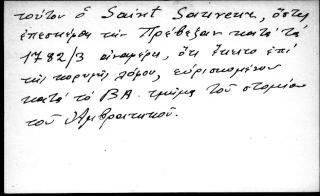 τούτου ὁ Saint Sauveur, ὅστις
ἐπεσκέφθη τὴν Πρέβεζαν κατὰ τὸ
1782/3 ἀναφέρει, ὅτι ἔκειτο ἐπὶ
τῆς κορυφῆς λόφου, εὑρισκομένου
κατὰ τὸ ΒΑ. τμῆμα τοῦ στομίου
τοῦ Ἀμβρακικοῦ.